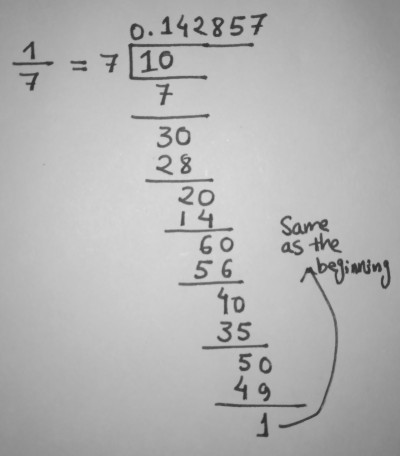 0.142857
1/7 = 7 10
7
30
28
20
14
60
56
40
35
50
49
1
Same
as the
beginning